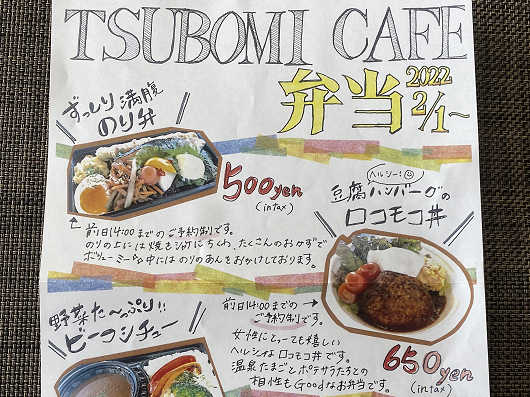 TSUBOMI CAFE
弁当 2022 2/1〜
ずっしり満腹
のり弁
500yen
(in tax)
前日14:00までのご予約制です。
のりの上には焼きシャケにちくわ、たくさんのおかずで
ボリューミー♪中にはのりのあんをおかけしております。
ヘルシー!
豆腐ハンバーグの
ロコモコ丼
前日14:00までの
ご予約制です。
女性にとっても嬉しい
ヘルシーなロコモコ丼です。
温泉たまごとポテサラたちとの
相性もGoodなお弁当です。
650yen
(in tax)
野菜た〜っぷり!!
ビーフシチュー